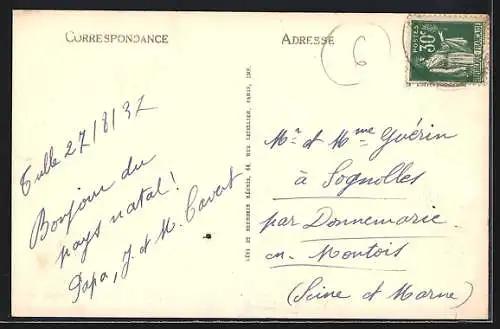 CORRESPONDANCE
Tulle 27/8/37
Bonjour du
pays natal!
Papa, J. et M. Cavert
LÉVY ET NEURDEIN RÉUNIS, 44, RUE LETELLIER, PARIS, IMP.
ADRESSE
6
POSTES
30c
Mr et Mme Guérin
à Sognolles
par Donnemarie
en Montois
(Seine et Marne)